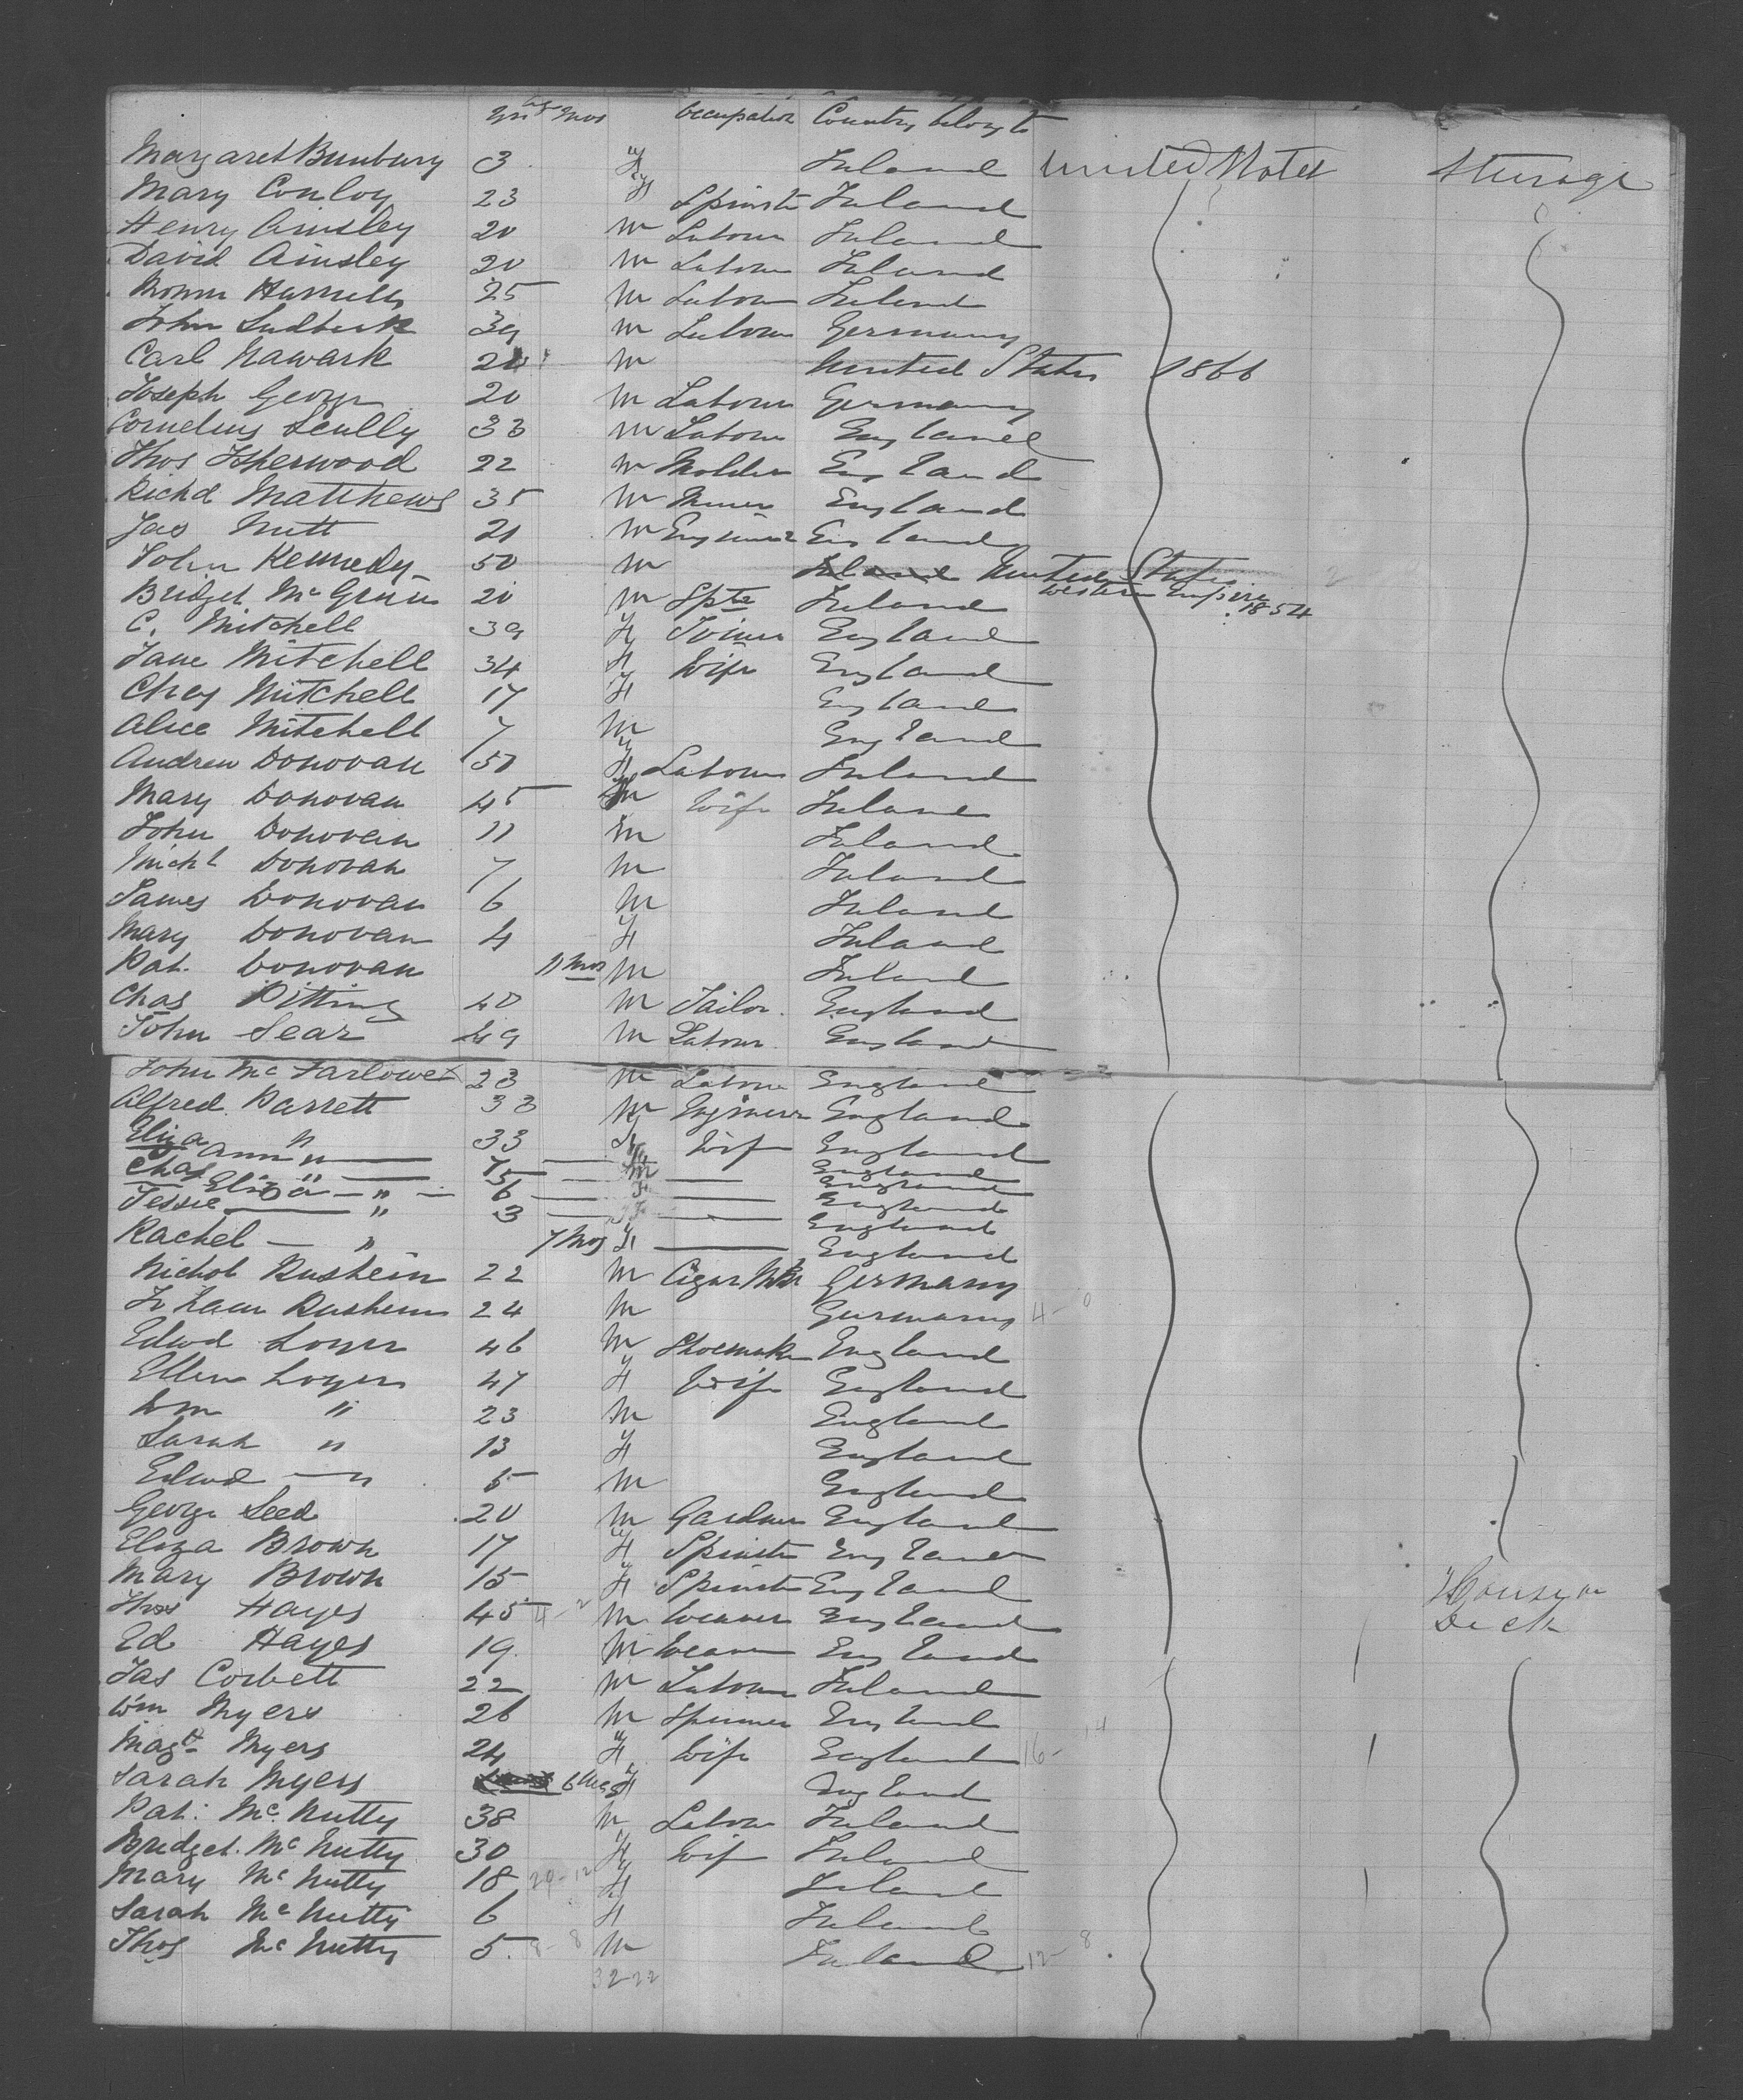 Age
Yrs Mos Occupation Country belong to
Margaret Bunbury 3 F Ireland United States Steerage
Mary Conloy 23 F Spinster Ireland
Henry Ainsley 20 M Labour Ireland
David Ainsley 20 M Labour Ireland
25 M Labour Ireland
John 39 M Labour Germany
Carl Nawark M United States 1866
Joseph George 20 M Labour Germany
Cornelius Scully 33 M Labour England
Thos Isherwood 22 M Molder England
Richd Matthews 35 M Miner England
Jas Nutt 21 M Engineer England
John Kennedy 50 M Ireland United States
Western Empire 1854
Bridget 20 M Sptr Ireland
C. Mitchell 39 F Joiner England
Jane Mitchell 34 F Wife England
Chas Mitchell 17 F England
Alice Mitchell 7 M England
Andrew Donovan 50 F Labour Ireland
Mary Donovan 45 M Wife Ireland
John Donovan 11 M Ireland
Michl Donovan 7 M Ireland
James Donovan 6 M Ireland
Mary Donovan 4 F Ireland
Pat. Donovan 11 Mos M Ireland
Chas Pitting 40 M Tailor England
John Sear 49 M Labour England
John Mc 23 M Labour England
Alfred Parrett 33 M Engineer England
Eliza " 33 F Wife England
Ann " 7 England
Chas " 5 M England
Eliza " 6 F England
Jessie " 3 England
Rachel " 7 Mos F England
Nichol Rushein 22 M Cigar Mkr Germany
Rushein 24 M Germany 4-0
Edwd Loyer 46 M Shoemaker England
Ellen Loyer 47 F Wife England
Wm " 23 M England
Sarah " 13 F England
Edwd " 5 M England
George Seed 20 M Gardner England
Eliza Brown 17 F Spinster England
Mary Brown 15 F Spinster England House on
Thos Hayes 45 4-2 M Weaver England Deck
Ed Hayes 19 M Weaver England
Jas Corbett 22 M Labour Ireland
Wm Myers 26 M Spinner England
Magt Myers 24 F Wife England 16-14
Sarah Myers 6 Mos F England
Pat. Mc Nutty 38 M Labour Ireland
Bridget. Mc Nutty 30 F Wife Ireland
Mary Mc Nutty 18 29-12 F Ireland
Sarah Mc Nutty 6 F Ireland
Thos Mc Nutty 5 8-8 M Ireland 12-8
32-22